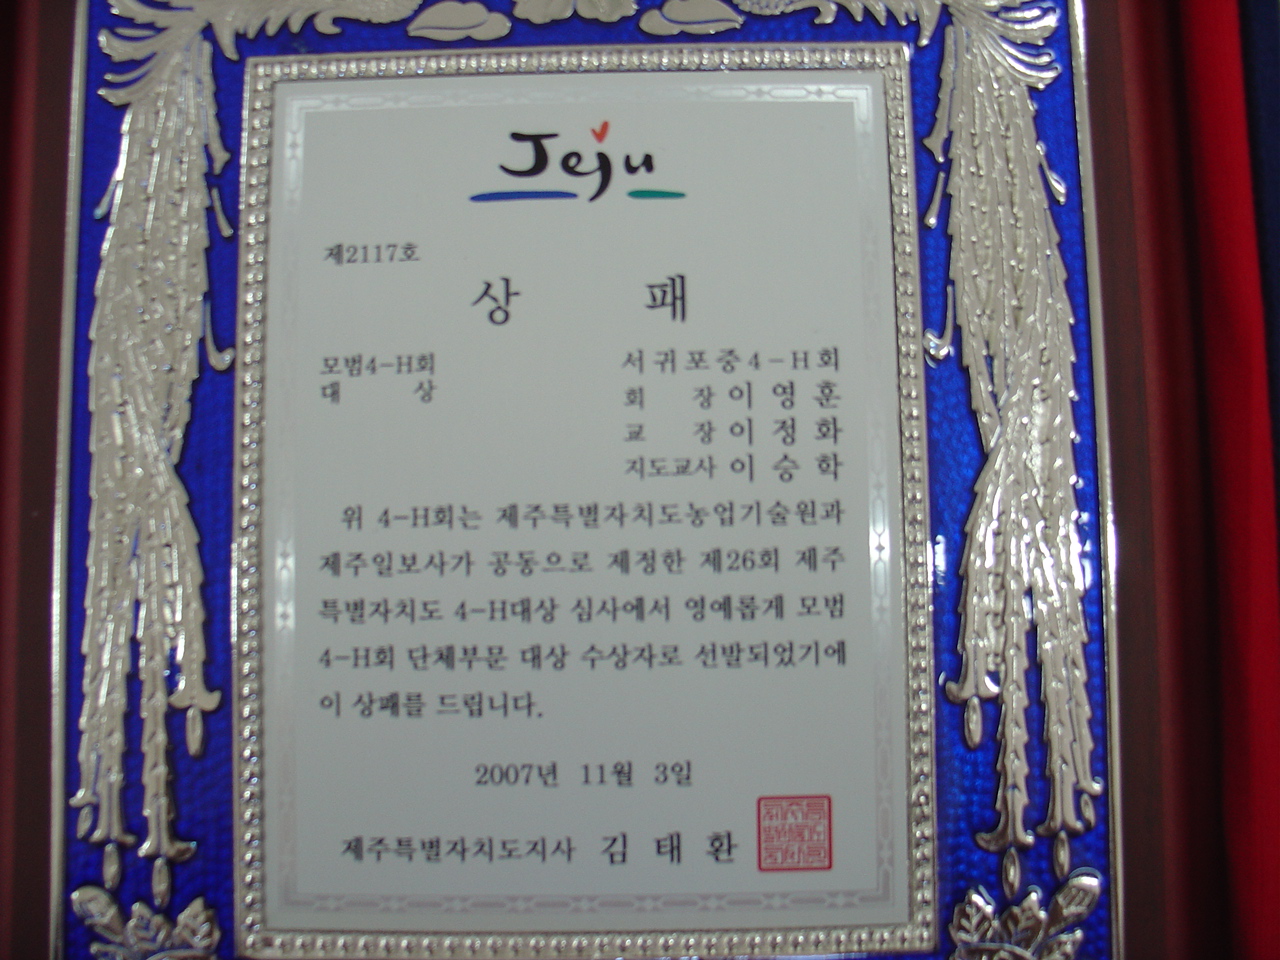 Jeju
제2117호
상 패
모범4-H회 서귀포중4-H회
대 상 회 장 이 영 훈
교 장 이 정 화
지도교사 이 승 학
위 4-H회는 제주특별자치도농업기술원과
제주일보사가 공동으로 제정한 제26회 제주
특별자치도 4-H대상 심사에서 영예롭게 모범
4-H회 단체부문 대상 수상자로 선발되었기에
이 상패를 드립니다.
2007년 11월 3일
제주특별자치도지사 김 태 환